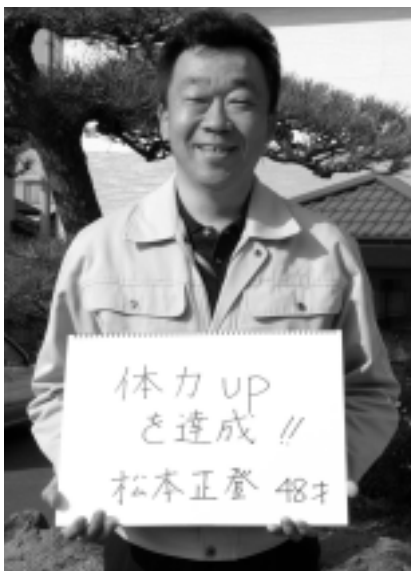 体力up
を達成!!
松本正登 48才